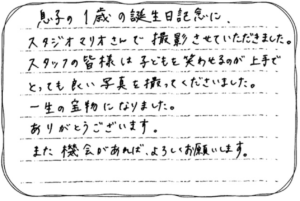 息子の1歳の誕生日記念に、
スタジオマリオさんで撮影させていただきました。
スタッフの皆様は子どもを笑わせるのが上手で
とっても良い写真を撮ってくださいました。
一生の宝物になりました。
ありがとうございます。
また機会があれば、よろしくお願いします。